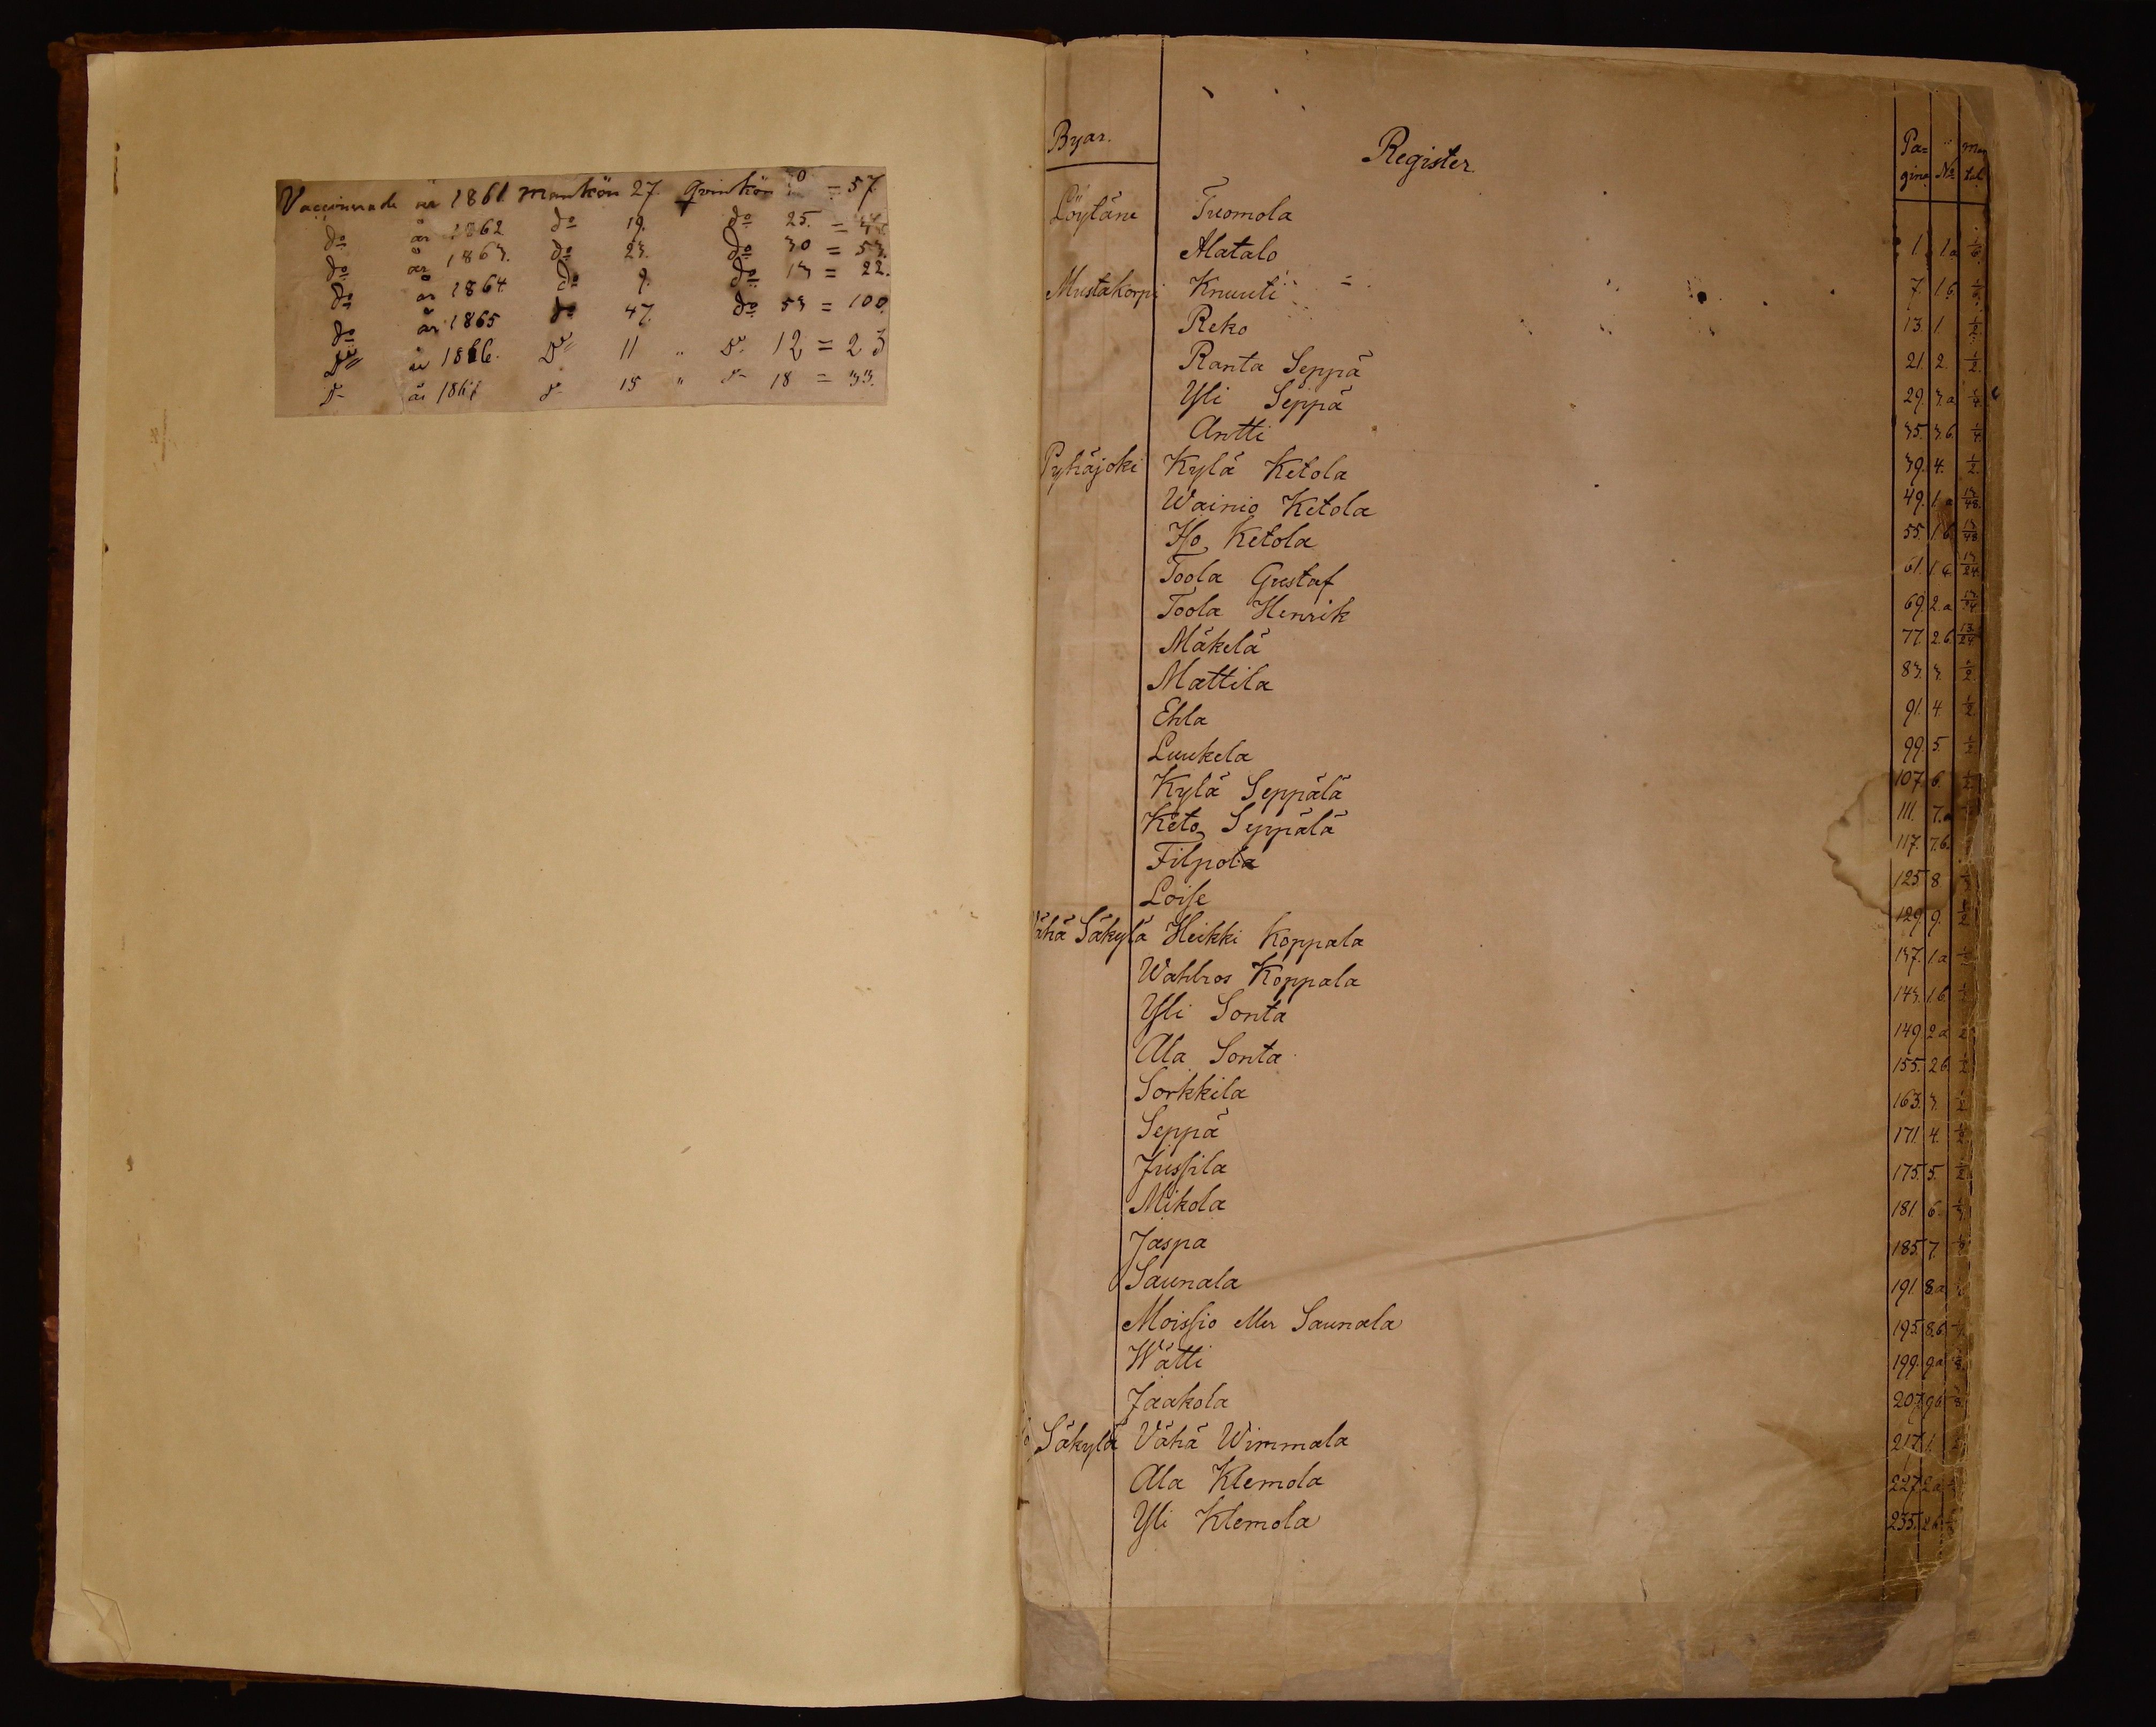 Vaccinerade år 1861 mankön 27. qvinkön 30 = 57.
do år 1862 do 19. do 25. = 44.
do år 1863. do 23. do 30 = 53.
do år 1864 do 9. do 13 = 22.
do år 1865 do 47. do 53 = 100.
Do år 1866. Do 11 " Do 12 = 23
Do år do 15 " do 18 = 33.
Byar. Register Pagina No mantal
Löytäne Tuomola 1 1a
Alatalo 7. 1b
Mustakorpi Knuuti 13. 1. 1/2
Reko 21. 2. 1/2
Ranta Seppä 29. 3.a 1/4
Yli Seppä 35. 3.b. 1/4
Antti 39. 4. 1/2
Pyhäjoki Kylä Ketola 49. 1.a 13/48
Wainio Ketola 55. 1.b 13/48
Iso Ketola 61. 1.c. 13/24
Toola Gustaf 69. 2.a 13/24
Toola Henrik 77. 2.b 13/24
Mäkelä 83. 3. 1/2
Mattila 91. 4 1/2
Ehla 99. 5. 1/2
Luukela 107. 6. 1/2
Kylä Seppälä 111. 7.a
Keto Seppälä 117. 7.b.
Filpola 125 8.
Loise 129 9. 1/2
Vähä Säkylä Heikki Koppala 137. 1.a
Wahlros Koppala 143. 1.b.
Yli Sonta 149 2a
Ala Sonta 155. 2b. 1/2
Sorkkila 163. 3. 1/2
Seppä 171. 4. 1/2
Jussila 175. 5. 1/2
Mikola 181. 6.
Jaspa 185. 7.
Saunala 191. 8a
Moissio eller Saunala 195. 8.b
Wätti 199. 9a
Jaakola 207. 9b
Säkylä Vähä Wimmala 217. 1.
Ala Klemola 227. 2a
Yli Klemola 235. 2b.